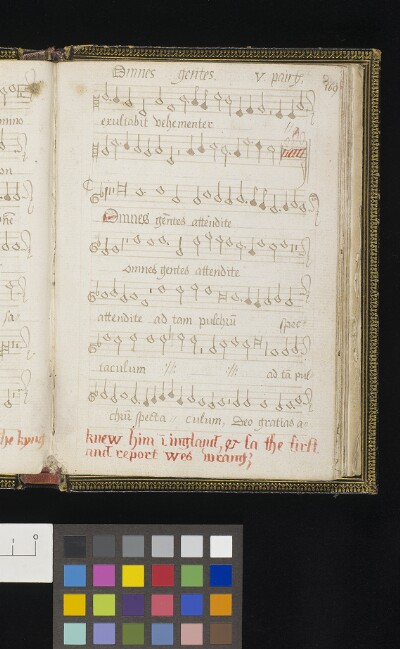 Omnes gentes. V pairt.
exultabit vehementer
Omnes gentes attendite
omnes gentes attendite
attendite ad tam pulchrū spec-
taculum :||: :||: ad tā pul-
chrū specta culum, Deo gratias a-
knew him i ingland, or sa the first
and report wes wrang,